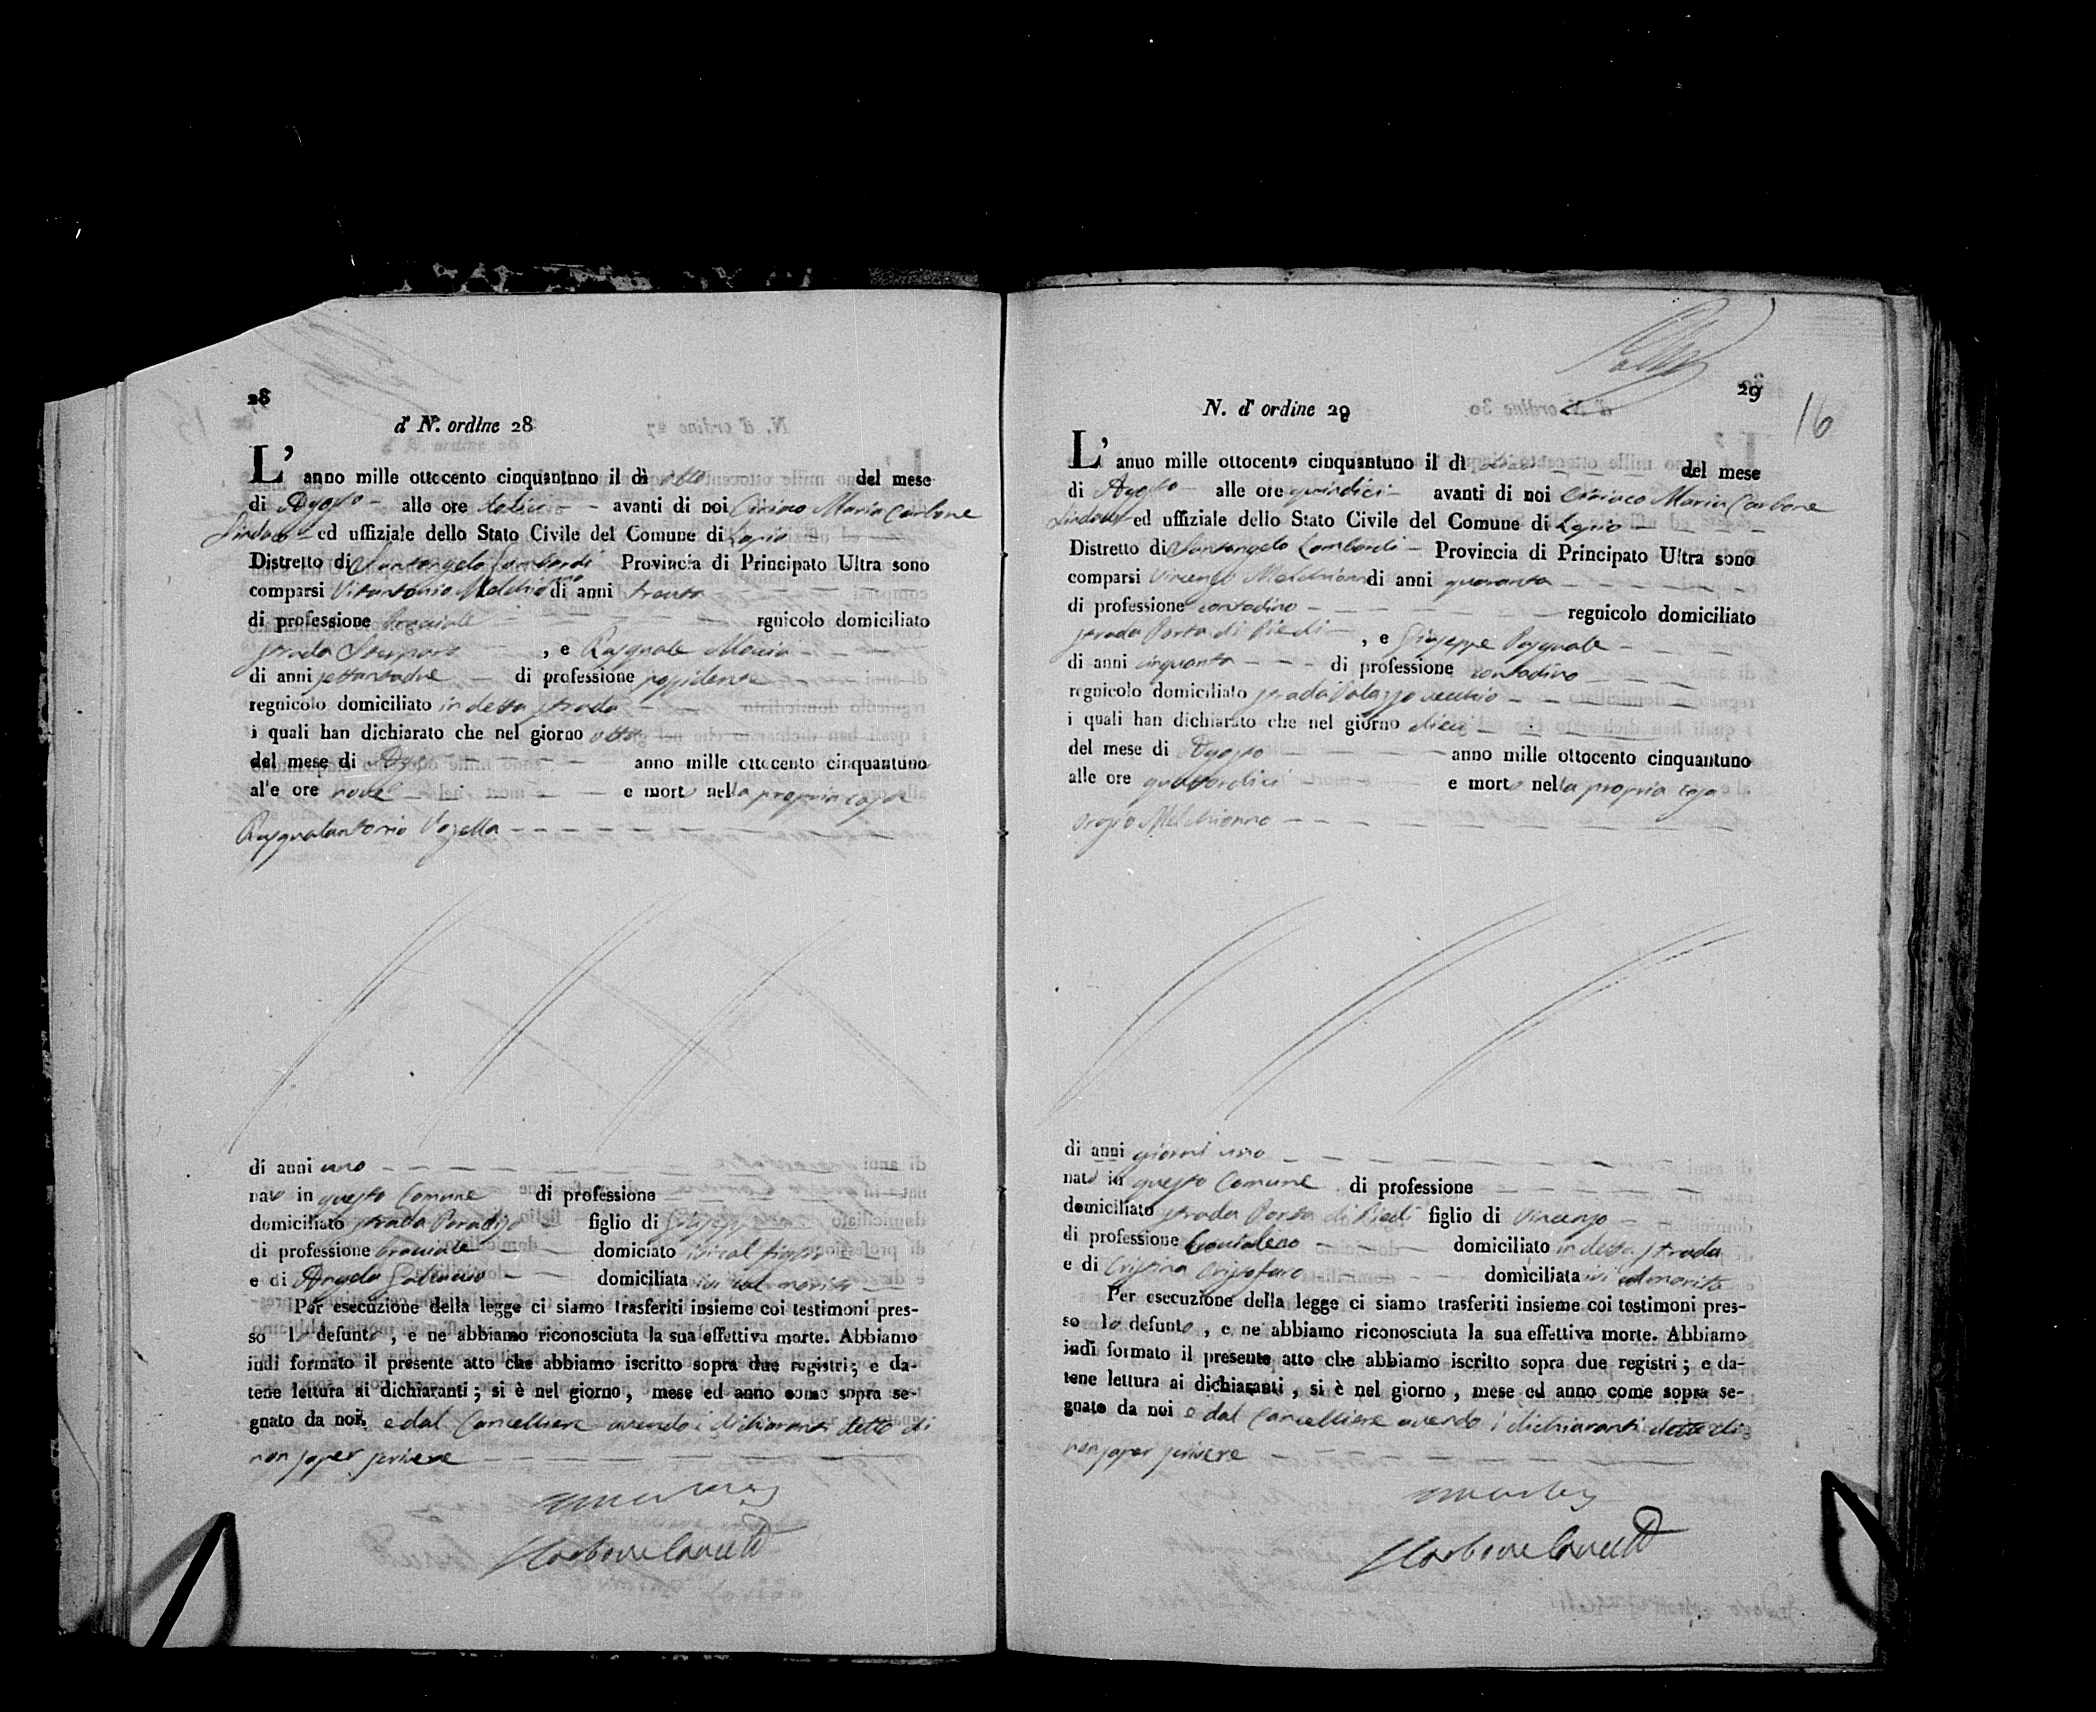 28
d' N°. ordine 28
L'anno mille ottocento cinquantuno il dì otto del mese
di Agosto alle ore avanti di noi Ciriaco Maria Carbone
Sindaco ed uffiziale dello Stato Civile del Comune di Lapio
Distretto di Santangelo Lombardi Provincia di Principato Ultra sono
comparsi Vitantonio Melchionno di anni trenta
di professione bracciale rgnicolo domiciliato
strada , e Pasquale
di anni settantadue di professione possidente
regnicolo domiciliato in detta strada
i quali han dichiarato che nel giorno otto
del mese di anno mille ottocento cinquantuno
al'e ore nove e morto nella propria casa
Pasqualantonio Vozella
di anni uno
nato in questo Comune di professione
domiciliato strada Paradiso figlio di Giuseppe
di professione bracciale domiciato ivi col figlio
e di Angela domiciliata ivi col marito
Per esecuzione della legge ci siamo trasferiti insieme coi testimoni pres-
so lo defunto , e ne abbiamo riconosciuta la sua effettiva morte. Abbiamo
indi formato il presente atto che abbiamo iscritto sopra due registri; e da-
tene lettura ai dichiaranti; si è nel giorno, mese ed anno come sopra se-
gnato da noi, e dal Cancelliere avendo i dichiaranti detto di
non saper scrivere
Carbone Cancell
29
16
N. d' ordine 29
L'anno mille ottocento cinquantuno il dì del mese
di Agosto alle ore quindici avanti di noi Ciriaco Maria Carbone
Sindaco ed uffiziale dello Stato Civile del Comune di Lapio
Distretto di Santangelo Lombardi Provincia di Principato Ultra sono
comparsi Vincenzo Melchionno di anni quaranta
di professione contadino regnicolo domiciliato
strada Porta di Piedi , e Giuseppe Pasquale
di anni cinquanta di professione contadino
regnicolo domiciliato strada Palazzo vecchio
i quali han dichiarato che nel giorno dieci
del mese di Agosto anno mille ottocento cinquantuno
alle ore quattordici e morto nella propria casa
Orazio Melchionno
di anni giorni uno
nato in questo Comune di professione
domiciliato strada Porta di Piedi figlio di Vincenzo
di professione domiciliato in detta strada
e di Cristina Cristofaro domiciliata ivi col marito
Per esecuzione della legge ci siamo trasferiti insieme coi testimoni pres-
so lo defunto , e ne abbiamo riconosciuta la sua effettiva morte. Abbiamo
indi formato il presente atto che abbiamo iscritto sopra due registri; e da-
tene lettura ai dichiaranti, si è nel giorno, mese ed anno come sopra se-
gnato da noi e dal Cancelliere avendo i dichiaranti detto di
non saper scrivere
Carbone Cancell